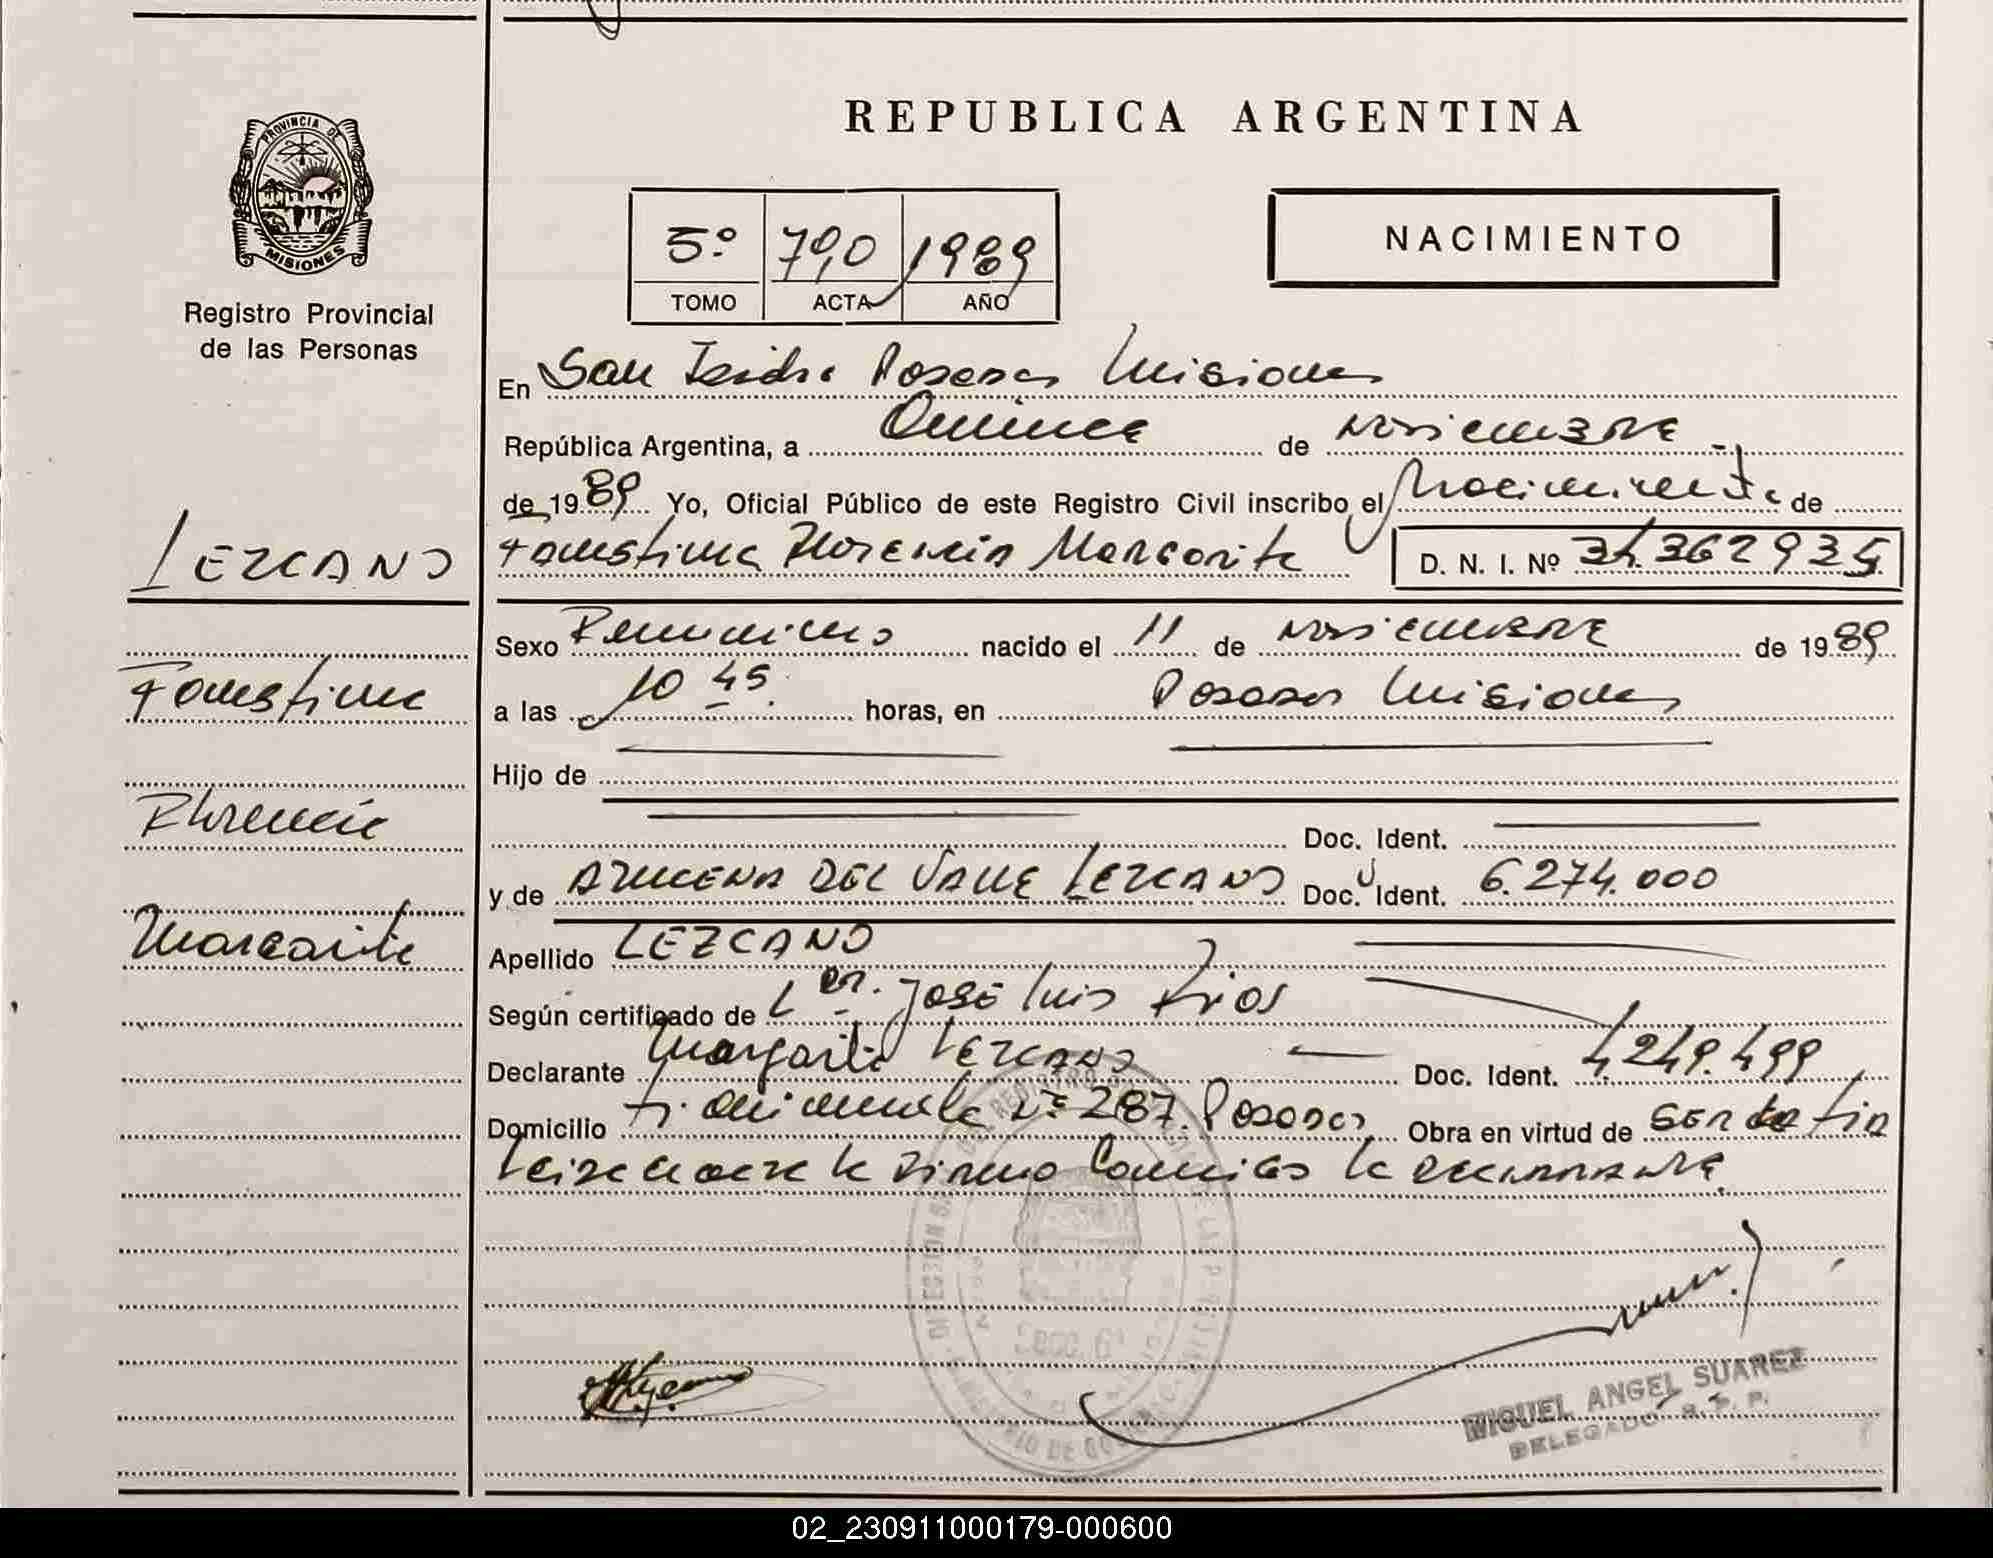 REPUBLICA ARGENTINA
PROVINCIA DE
MISIONES
Registro Provincial
de las Personas
5º 790 1989
TOMO ACTA AÑO
NACIMIENTO
En San Isidro Posadas Misiones
República Argentina, a Quince de Noviembre
de 1989 Yo, Oficial Público de este Registro Civil inscribo el Nacimiento de
Faustina Florencia Margarita D. N. I. Nº 34.362935
LEZCANO
Faustina
Florencia
Margarita
Sexo Femenino nacido el 11 de Noviembre de 1989
a las 10 45 horas, en Posadas Misiones
Hijo de
Doc. Ident.
y de AZUCENA DEL VALLE LEZCANO Doc. Ident. 6.274.000
Apellido LEZCANO
Según certificado de Dr. José Luis Rios
Declarante Margarita LEZCANO Doc. Ident. 4.249.499
Domicilio Nº 287 Posadas Obra en virtud de ser la tia
la declarante
MIGUEL ANGEL SUAREZ
DELEGADO R. P. P.
02_230911000179-000600